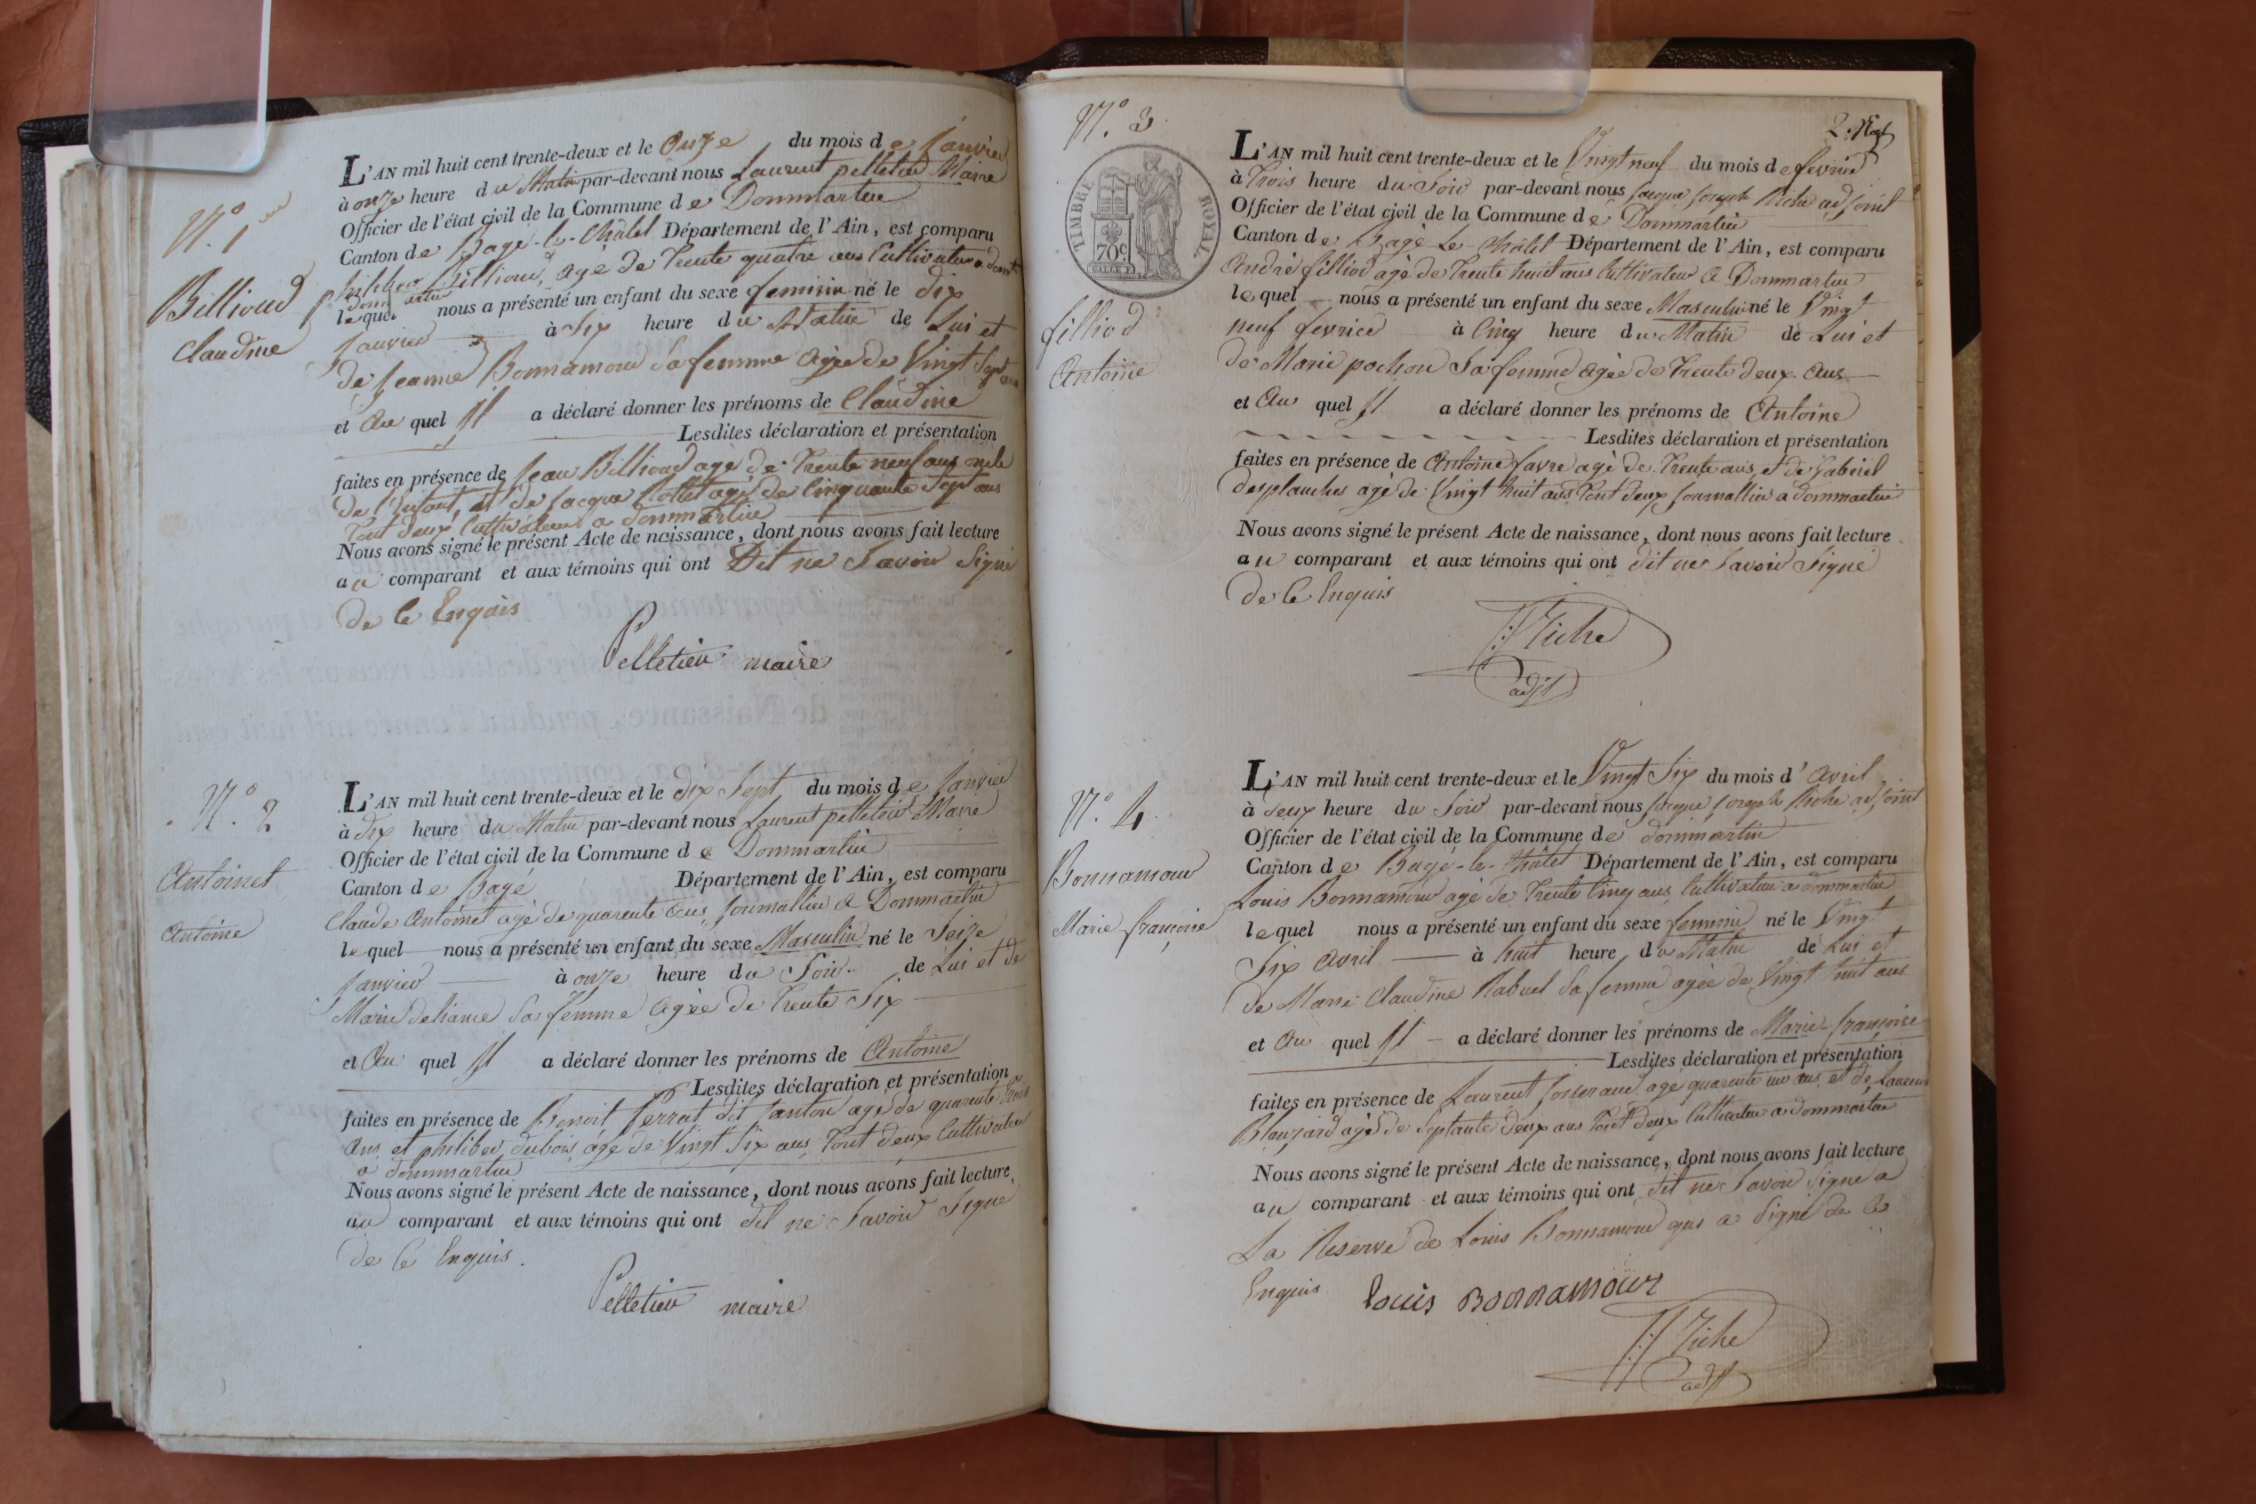 N.° 1er
Billioud
Claudine
L'AN mil huit cent trente-deux et le Onze du mois de Janvier
à onze heure du Matin par-devant nous Laurent pelletier Maire
Officier de l'état civil de la Commune de Dommartin
Canton de Bagé-le-Châtel Département de l'Ain, est comparu
philiber Billioud, agé de Trente quatre ans Cultivateur a dom
martin
lequel nous a présenté un enfant du sexe feminin né le dix
Janvier à Six heure du Matin de Lui et
de Jeanne Bonnamour Sa femme agée de Vingt Sept ans
et Au quel Il a déclaré donner les prénoms de Claudine
Lesdites déclaration et présentation
faites en présence de Jean Billioud agé de Trente neuf ans oncle
de l'Enfant, et de Jacque Collet agé de Cinquante Sept ans
Tout deux Cultivateur a dommartin
Nous avons signé le présent Acte de naissance, dont nous avons fait lecture
au comparant et aux témoins qui ont Dit ne Savoir Signé
de Ce Enquis
Pelletier maire
N.° 2
Antoinet
Antoine
L'AN mil huit cent trente-deux et le dix Sept du mois de Janvier
à dix heure du Matin par-devant nous Laurent pelletier Maire
Officier de l'état civil de la Commune de Dommartin
Canton de Bagé Département de l'Ain, est comparu
Claude Antoinet agé de quarente ans Journallier a Dommartin
lequel nous a présenté un enfant du sexe Masculin né le Seize
Janvier à onze heure du Soir de Lui et de
Marie deliance Sa femme agée de Trente Six
et Au quel Il a déclaré donner les prénoms de Antoine
Lesdites déclaration et présentation
faites en présence de Benoit ferrat dit Janton agé de quarente Trois
ans et philiber dubois agé de Vingt Six ans Tout deux Cultivateur
a dommartin
Nous avons signé le présent Acte de naissance, dont nous avons fait lecture
au comparant et aux témoins qui ont dit ne Savoir Signé
de Ce Enquis.
Pelletier maire
2.e
N.° 3
TIMBRE ROYAL
70c
filliod
Antoine
L'AN mil huit cent trente-deux et le Vingt neuf du mois de fevrier
à Trois heure du Soir par-devant nous Jacque Joseph Riche adjoint
Officier de l'état civil de la Commune de Dommartin
Canton de Bagé Le Châtel Département de l'Ain, est comparu
André filliod agé de Trente huit ans Cultivateur a Dommartin
lequel nous a présenté un enfant du sexe Masculin né le Vingt
neuf fevrier à Cinq heure du Matin de Lui et
de Marie pochon Sa femme agée de Trente deux ans
et Au quel Il a déclaré donner les prénoms de Antoine
Lesdites déclaration et présentation
faites en présence de Antoine favre agé de Trente ans et de Gabriel
desplanches agé de Vingt huit ans Tout deux Journallier a dommartin
Nous avons signé le présent Acte de naissance, dont nous avons fait lecture
au comparant et aux témoins qui ont dit ne Savoir Signé
de Ce Enquis
Riche
adjt
N.° 4
Bonnamour
Marie françoise
L'AN mil huit cent trente-deux et le Vingt Six du mois d' avril
à deux heure du Soir par-devant nous Jacque Joseph Riche adjoint
Officier de l'état civil de la Commune de dommartin
Canton de Bagé-le-Châtel Département de l'Ain, est comparu
Louis Bonnamour agé de Trente Cinq ans Cultivateur a dommartin
lequel nous a présenté un enfant du sexe feminin né le Vingt
Six avril à huit heure du Matin de Lui et
de Marie Claudine Rabuel Sa femme agée de Vingt huit ans
et Au quel Il a déclaré donner les prénoms de Marie françoise
Lesdites déclaration et présentation
faites en présence de Laurent Josserand agé quarente un ans et de Laurent
Blanzard agé de Septante deux ans Tout deux Cultivateur a dommartin
Nous avons signé le présent Acte de naissance, dont nous avons fait lecture
au comparant et aux témoins qui ont dit ne Savoir Signé a
La Reserve de Louis Bonnamour qui a Signé de Ce
Enquis Louis Bonnamour
Riche
adjt